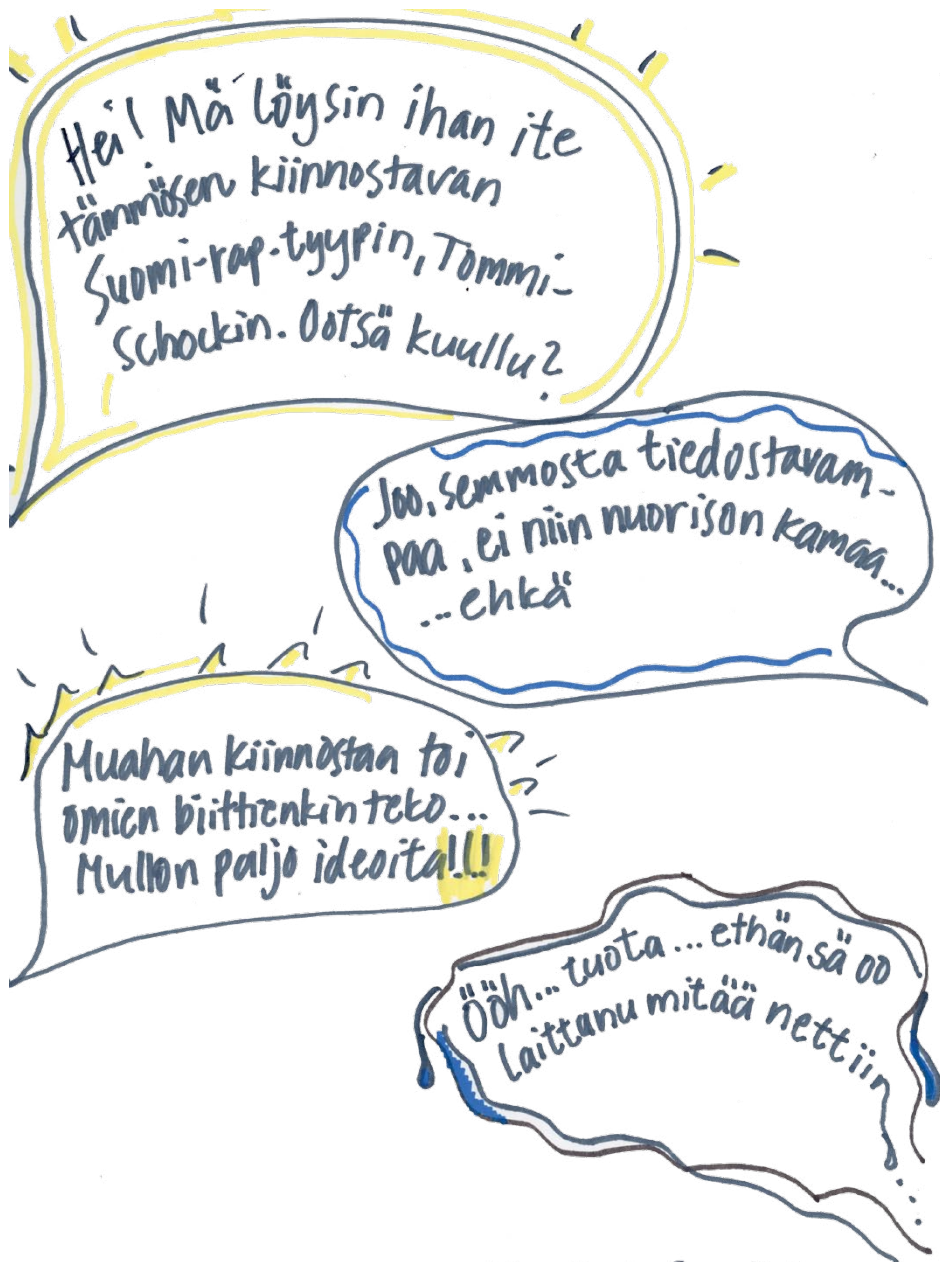 Hei! Mä löysin ihan ite
tämmösen kiinnostavan
Suomi-rap-tyypin, Tommi-
Schockin. Ootsä kuullu?
Joo, semmosta tiedostavam-
paa, ei niin nuorison kamaa...
...ehkä
Muahan kiinnostaa toi
omien biittienkin teko...
Mullon paljo ideoita!!!
Ööh... tuota... ethän sä oo
laittanu mitää nettiin